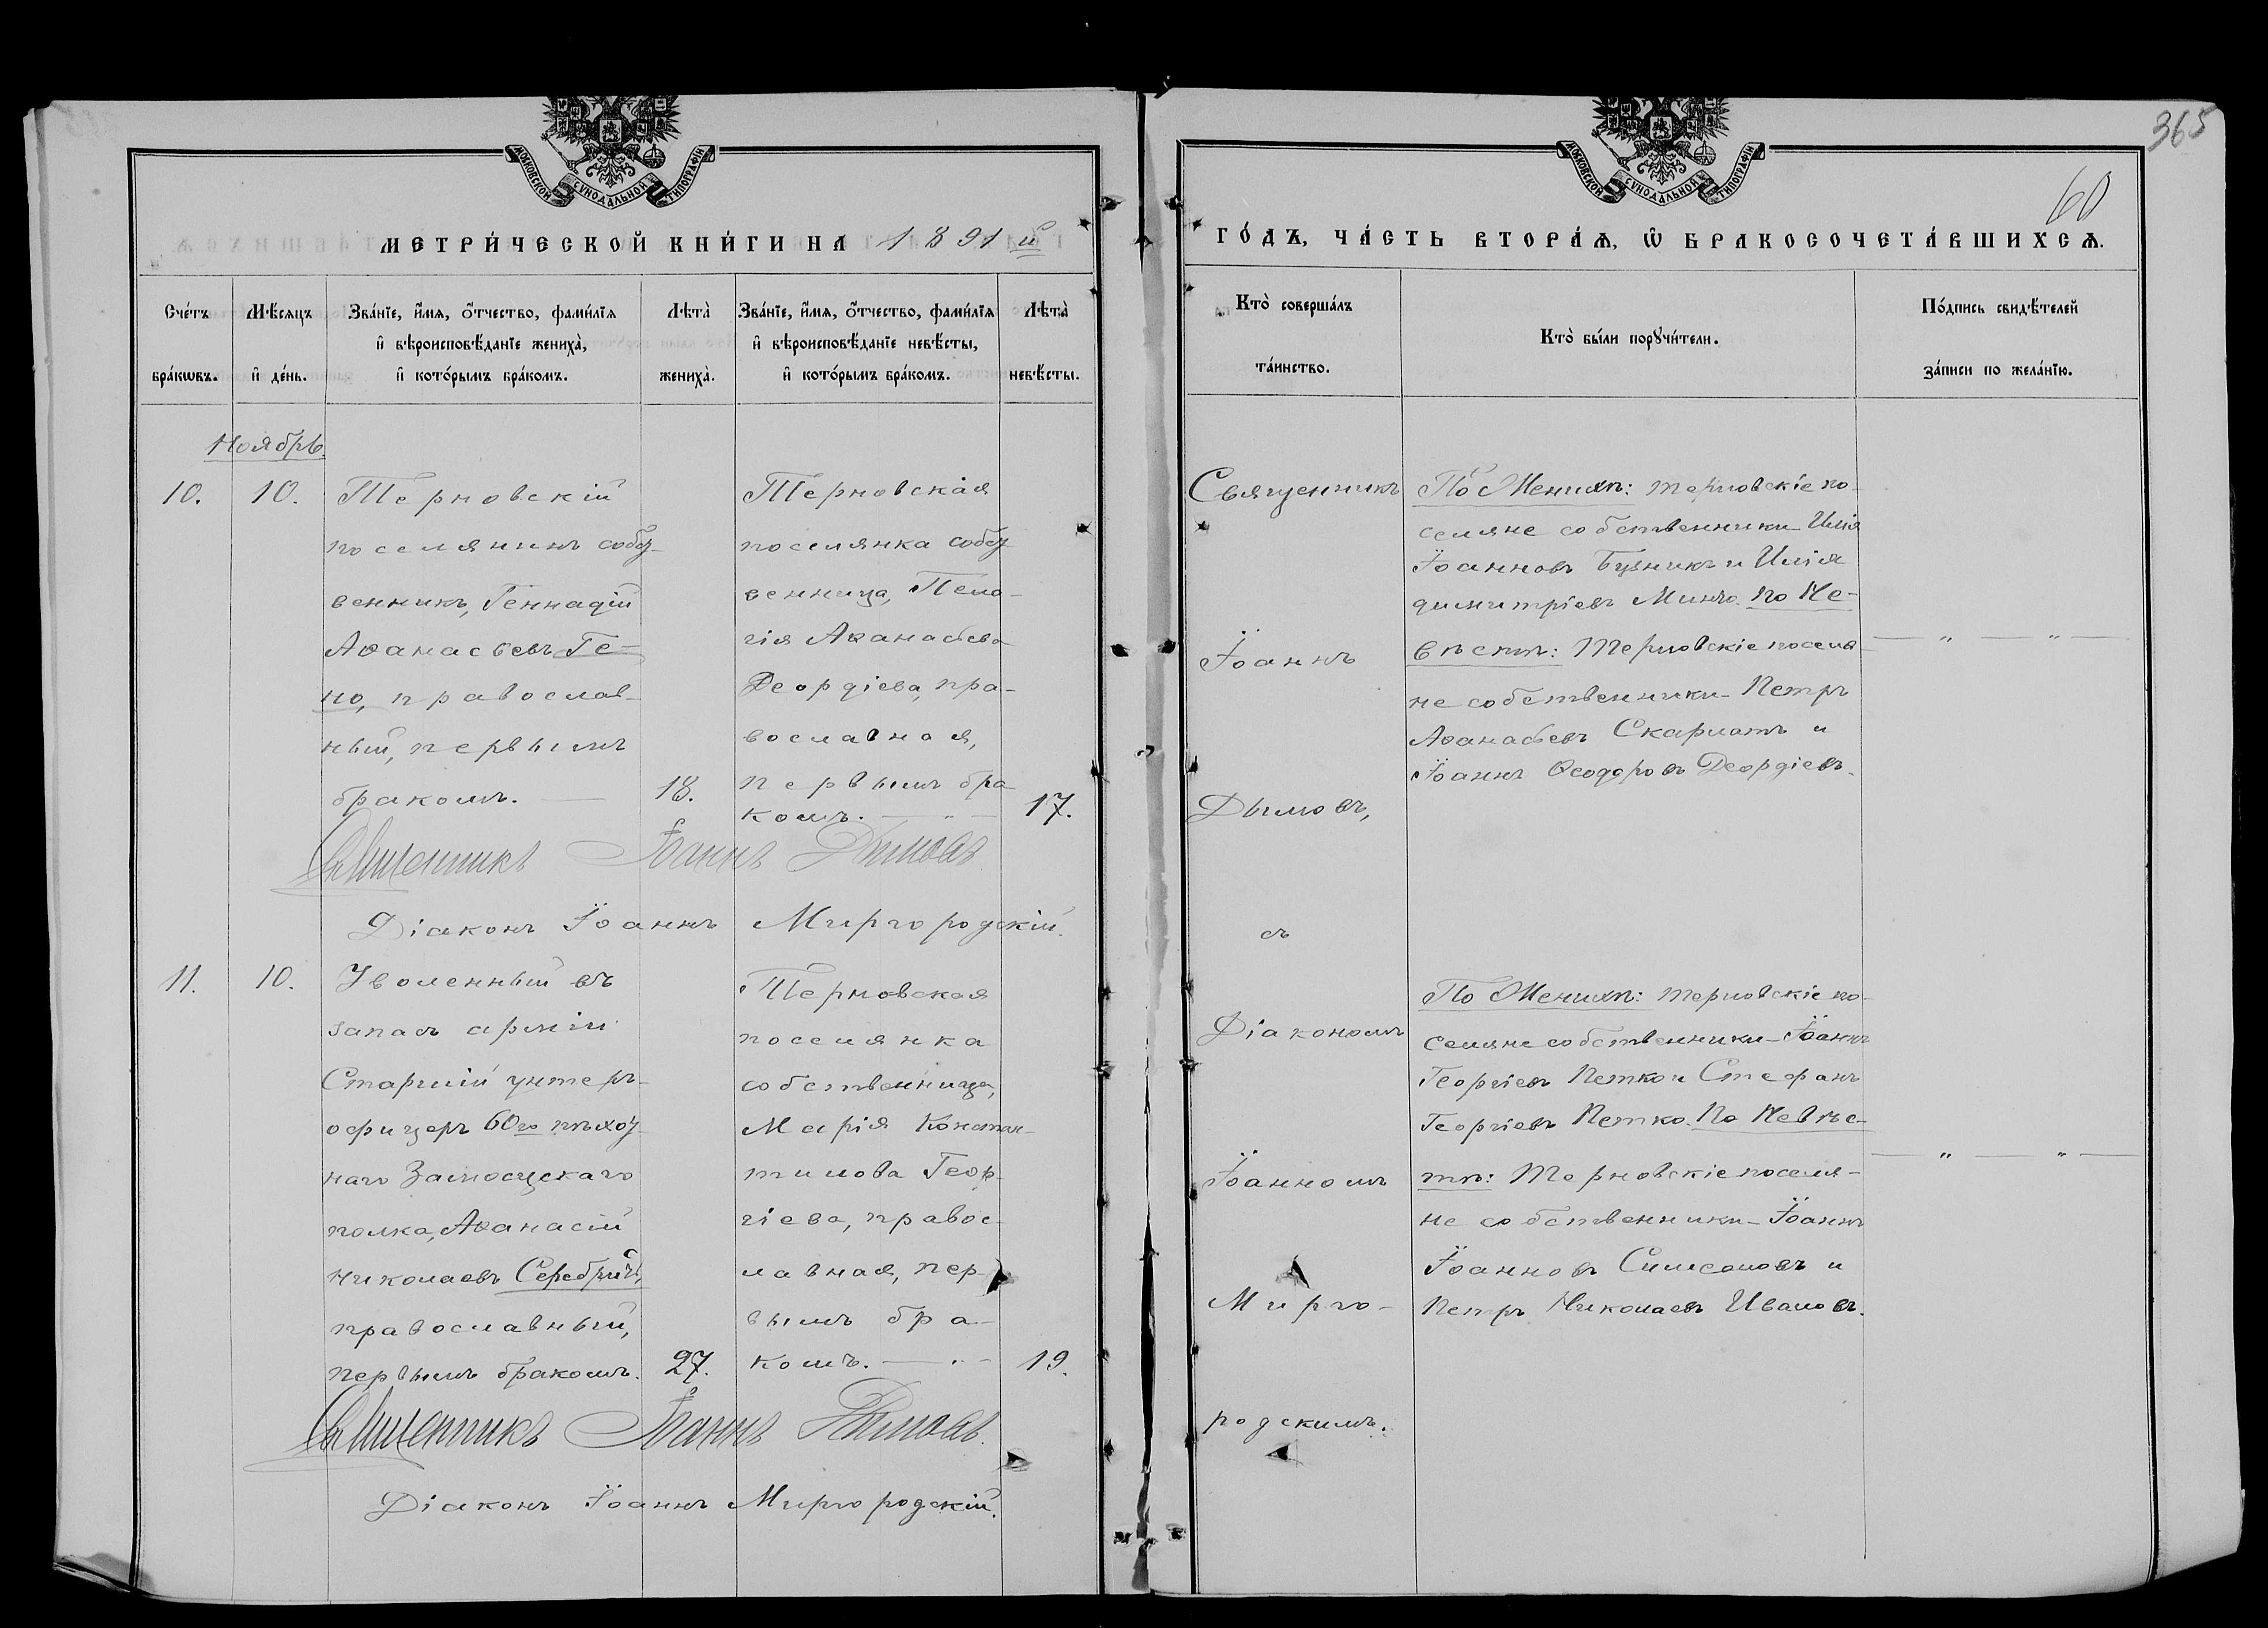 365
60
МОСКОВСКОЙ СѴНОДАЛЬНОЙ ТИПОГРАФІИ
МЕТРИ́ЧЕСКОЙ КНИ́ГИ НА 1891 й
Сче́тъ бра́кѡвъ.
Мѣ́сяцъ и҆ де́нь.
Зва́нїе, и҆́мя, ѻ҆́тчество, фами́лїя
и҆ вѣроисповѣ́данїе жениха̀,
и҆ кото́рымъ бра́комъ.
Лѣта̀ жениха̀.
Зва́нїе, и҆́мя, ѻ҆́тчество, фами́лїя
и҆ вѣроисповѣ́данїе невѣ́сты,
и҆ кото́рымъ бра́комъ.
Лѣта̀ невѣ́сты.
Ноябрь.
10.
10.
Терновскій
поселянинъ собст-
венникъ, Геннадій
Аѳанасьевъ Ге-
но, православ-
ный, первымъ
бракомъ. —
18.
Терновская
поселянка собст-
венница, Пела-
гія Аѳанасьева
Деордіева, пра-
вославная,
первымъ бра-
комъ. — „ —
17.
Священникъ Іоаннъ Дымовъ
Діаконъ Іоаннъ Миргородскій.
11.
10.
Уволенный въ
запасъ арміи
Старшій унтеръ-
офицеръ 60го пѣхот-
наго Замосцскаго
полка, Аѳанасій
Николаевъ
православный,
первымъ бракомъ.
27.
Терновская
поселянка
собственница,
Марія Констан-
тинова Геор-
гіева, правос-
лавная, пер-
вымъ бра-
комъ. — „ —
19.
Священникъ Іоаннъ Дымовъ.
Діаконъ Іоаннъ Миргородскій.
МОСКОВСКОЙ СѴНОДАЛЬНОЙ ТИПОГРАФІИ
ГО́ДЪ, ЧА́СТЬ ВТОРА́Ѧ, Ѽ БРАКОСОЧЕТА́ВШИХСѦ.
Кто̀ соверша́лъ
та́инство.
Кто̀ бы́ли порꙋчи́тели.
По́дпись свидѣ́телей
за́писи по жела́нїю.
Священникъ
Іоаннъ
Дымовъ,
съ
Діакономъ
Іоанномъ
Мирго-
родскимъ.
По Женихѣ: терновскіе по-
селяне собственники Илія
Іоанновъ и Илія
Димитріевъ Минчо. По Не-
вѣстѣ: Терновскіе поселя-
не собственники – Петръ
Аѳанасьевъ Скарлатъ и
Іоаннъ Ѳеодоровъ Деордіевъ.
— „ — „ —
По Женихѣ: терновскіе по-
селяне собственники – Іоаннъ
Георгіевъ Петко и Стефанъ
Георгіевъ Петко. По Невѣс-
тѣ: Терновскіе поселя-
не собственники – Іоаннъ
Іоанновъ Симеоновъ и
Петръ Николаевъ Ивановъ.
— „ — „ —